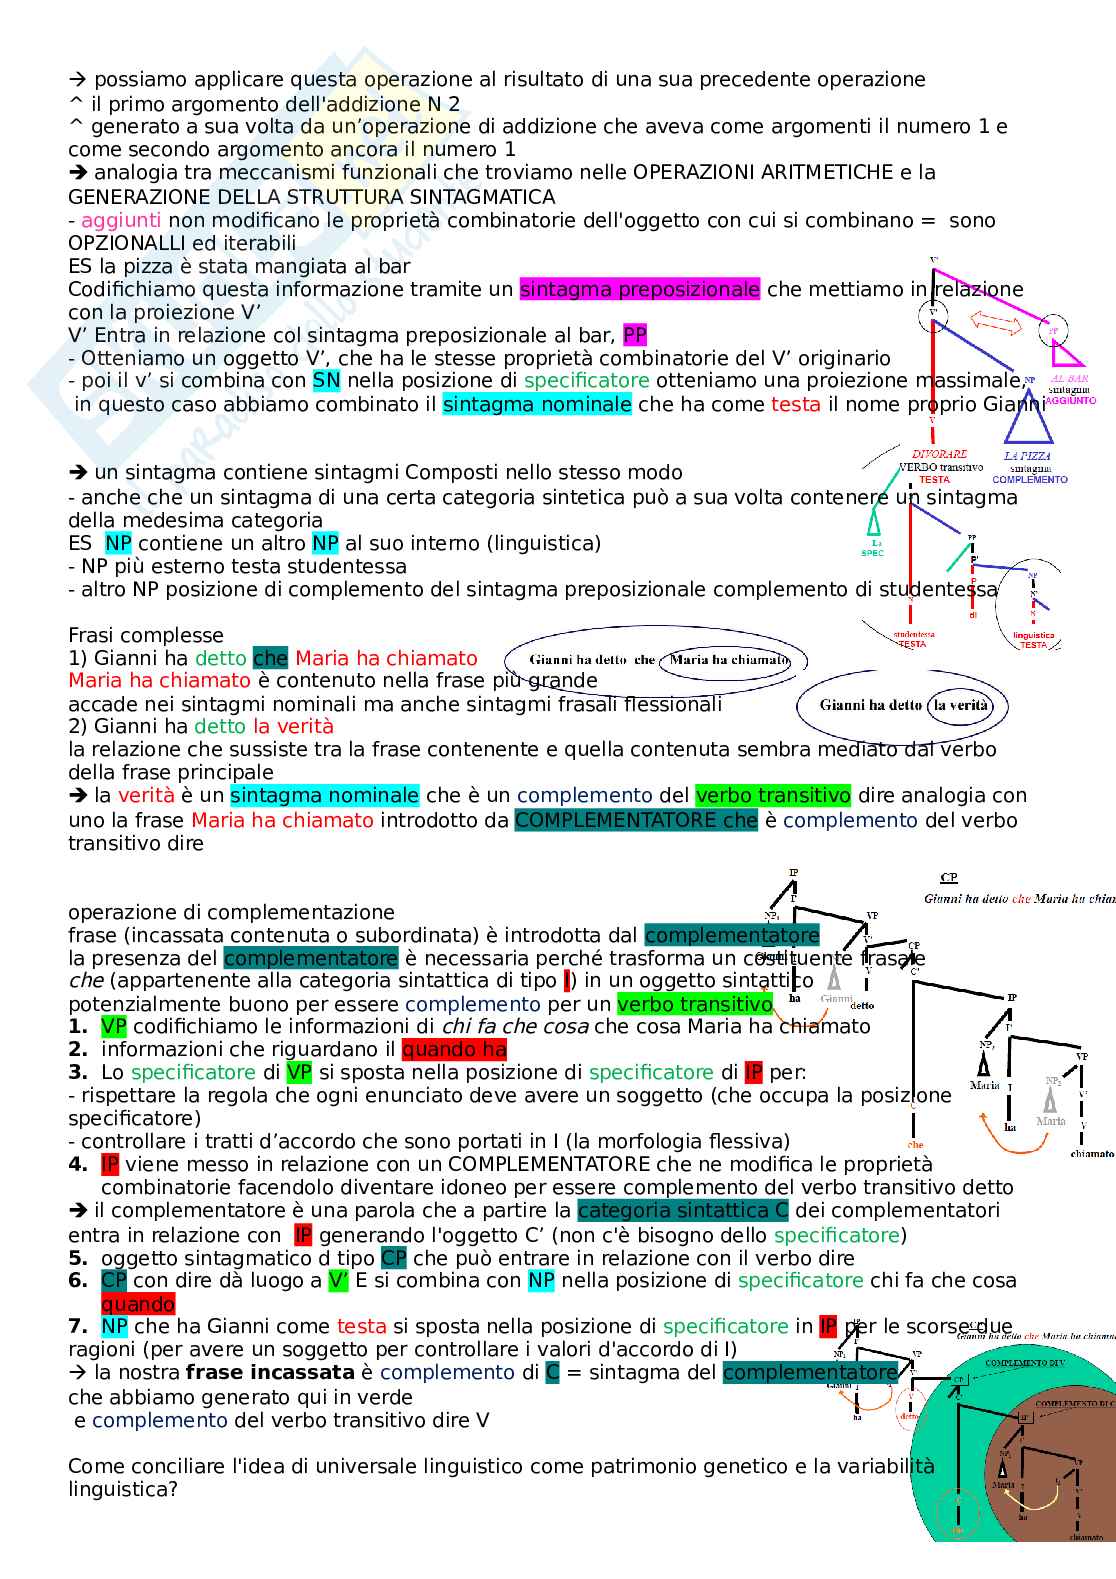 → possiamo applicare questa operazione al risultato di una sua precedente operazione
^ il primo argomento dell'addizione N 2
^ generato a sua volta da un’operazione di addizione che aveva come argomenti il numero 1 e
come secondo argomento ancora il numero 1
➔ analogia tra meccanismi funzionali che troviamo nelle OPERAZIONI ARITMETICHE e la
GENERAZIONE DELLA STRUTTURA SINTAGMATICA
- aggiunti non modificano le proprietà combinatorie dell'oggetto con cui si combinano = sono
OPZIONALLI ed iterabili
ES la pizza è stata mangiata al bar
Codifichiamo questa informazione tramite un sintagma preposizionale che mettiamo in relazione
con la proiezione V’
V’ Entra in relazione col sintagma preposizionale al bar, PP
- Otteniamo un oggetto V’, che ha le stesse proprietà combinatorie del V’ originario
- poi il v’ si combina con SN nella posizione di specificatore otteniamo una proiezione massimale,
in questo caso abbiamo combinato il sintagma nominale che ha come testa il nome proprio Gianni
V'
V'
PP
AL BAR
sintagma
AGGIUNTO
NP
V
DIVORARE
VERBO transitivo
TESTA
LA PIZZA
sintagma
COMPLEMENTO
➔ un sintagma contiene sintagmi Composti nello stesso modo
- anche che un sintagma di una certa categoria sintetica può a sua volta contenere un sintagma
della medesima categoria
ES NP contiene un altro NP al suo interno (linguistica)
- NP più esterno testa studentessa
- altro NP posizione di complemento del sintagma preposizionale complemento di studentessa
La
SPEC
PP
P'
P
di
NP
N'
N
N
studentessa
TESTA
linguistica
TESTA
Frasi complesse
1) Gianni ha detto che Maria ha chiamato
Gianni ha detto che Maria ha chiamato
Maria ha chiamato è contenuto nella frase più grande
accade nei sintagmi nominali ma anche sintagmi frasali flessionali
Gianni ha detto la verità
2) Gianni ha detto la verità
la relazione che sussiste tra la frase contenente e quella contenuta sembra mediato dal verbo
della frase principale
➔ la verità è un sintagma nominale che è un complemento del verbo transitivo dire analogia con
uno la frase Maria ha chiamato introdotto da COMPLEMENTATORE che è complemento del verbo
transitivo dire
CP
Gianni ha detto che Maria ha chiam
IP
I'
NP₁
VP
V'
CP
C'
V
ha
Gianni
detto
IP
I'
NP₂
VP
Maria
NP₂
V'
I
ha
Maria
V
C
che
chiamato
operazione di complementazione
frase (incassata contenuta o subordinata) è introdotta dal complementatore
la presenza del complementatore è necessaria perché trasforma un costituente frasale
che (appartenente alla categoria sintattica di tipo I) in un oggetto sintattico
potenzialmente buono per essere complemento per un verbo transitivo
1. VP codifichiamo le informazioni di chi fa che cosa che cosa Maria ha chiamato
2. informazioni che riguardano il quando ha
3. Lo specificatore di VP si sposta nella posizione di specificatore di IP per:
- rispettare la regola che ogni enunciato deve avere un soggetto (che occupa la posizione
specificatore)
- controllare i tratti d’accordo che sono portati in I (la morfologia flessiva)
4. IP viene messo in relazione con un COMPLEMENTATORE che ne modifica le proprietà
combinatorie facendolo diventare idoneo per essere complemento del verbo transitivo detto
➔ il complementatore è una parola che a partire la categoria sintattica C dei complementatori
entra in relazione con IP generando l'oggetto C’ (non c'è bisogno dello specificatore)
5. oggetto sintagmatico d tipo CP che può entrare in relazione con il verbo dire
6. CP con dire dà luogo a V’ E si combina con NP nella posizione di specificatore chi fa che cosa
quando
7. NP che ha Gianni come testa si sposta nella posizione di specificatore in IP per le scorse due
ragioni (per avere un soggetto per controllare i valori d'accordo di I)
→ la nostra frase incassata è complemento di C = sintagma del complementatore
che abbiamo generato qui in verde
e complemento del verbo transitivo dire V
Gianni ha detto che Maria ha chiama
COMPLEMENTO DI V
COMPLEMENTO DI C
NP₁
VP
V'
CP
C'
Gianni
ha
V
detto
IP
NP₂
Maria
VP
V'
V
ha
chiamato
che
Come conciliare l'idea di universale linguistico come patrimonio genetico e la variabilità
linguistica?